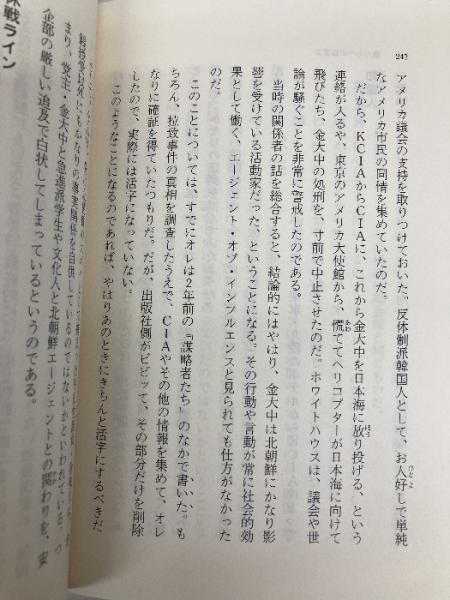 247
アメリカ議会の支持を取りつけておいた。反体制派韓国人として、お人好しで単純
なアメリカ市民の同情を集めていたのだ。
だから、KCIAからCIAに、これから金大中を日本海に放り投げる、という
連絡が入るや、東京のアメリカ大使館から、慌ててヘリコプターが日本海に向けて
飛びたち、金大中の処刑を、寸前で中止させたのだ。ホワイトハウスは、議会や世
論が騒ぐことを非常に警戒したのである。
当時の関係者の話を総合すると、結論的にはやはり、金大中は北朝鮮にかなり影
響を受けている活動家だった、ということになる。その行動や言動が常に社会的効
果として働く、エージェント・オブ・インフルエンスと見られても仕方がなかった
のだ。
このことについては、すでにオレは2年前の『謀略者たち』のなかで書いた。も
ちろん、拉致事件の真相を調査したうえで、CIAやその他の情報を集めて、オレ
なりに確証を得ていたつもりだ。だが、出版社側がビビッて、その部分だけを削除
したので、実際には活字になっていない。
このようなことになるのであれば、やはりあのときにきちんと活字にするべきだ
かなりの事実関係を自供しているのではないかといわれている。つ
まり、党主・金大中と急進派学生や文化人と北朝鮮エージェントとの関わりを、安
企部の厳しい追及で白状してしまっているというのである。
戦ライン